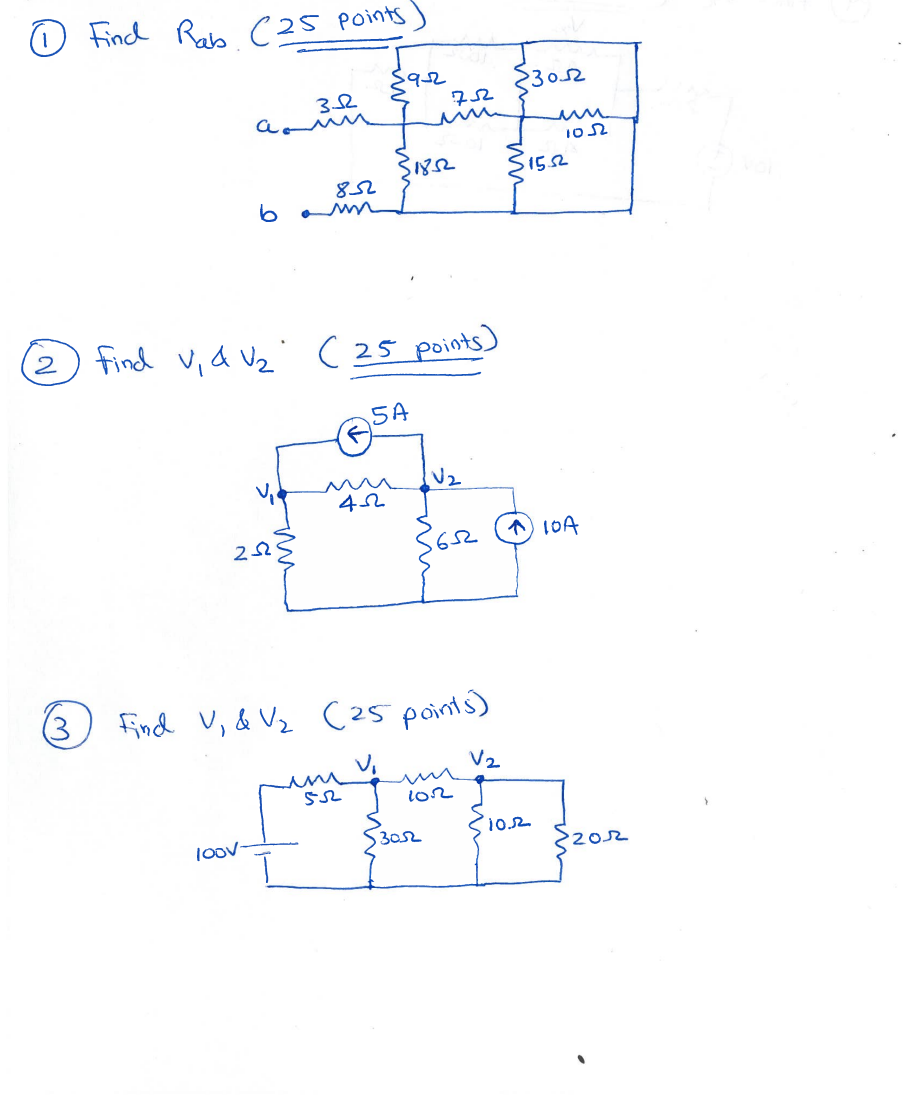 ① Find Rab. (25 points)
9Ω
30Ω
7Ω
3Ω
a
10Ω
18Ω
15Ω
8Ω
b
② find V₁ & V₂ (25 points)
5A
V₁
V₂
4Ω
2Ω
6Ω
10A
③ Find V₁ & V₂ (25 points)
V₁
V₂
5Ω
10Ω
30Ω
10Ω
20Ω
100V